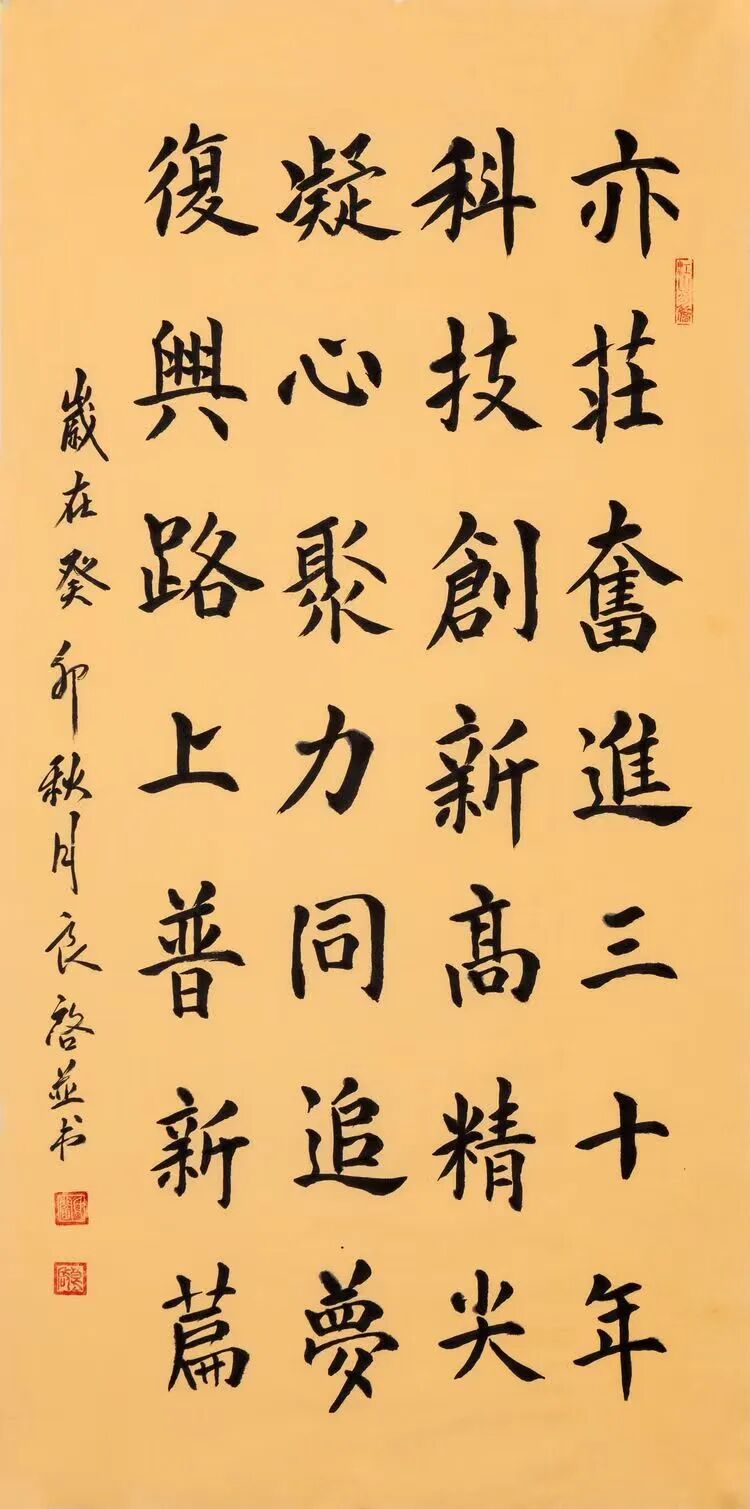 亦莊奮進三十年
科技創新高精尖
凝心聚力同追夢
復興路上普新篇
歲在癸卯秋月良啓並书